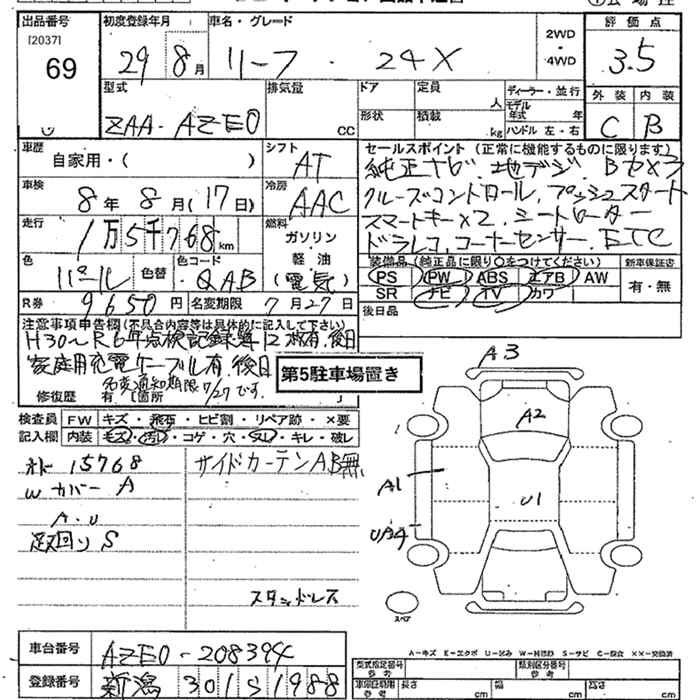 出品番号 初度登録年月 車名・グレード 評価点
[2037]
69 29年 8月 リーフ ・ 24X 2WD ・ 4WD 3.5
型式 排気量 ドア 定員 人 ディーラー・並行 外装 内装
ZAA-AZE0 CC 形状 積載 kg モデル年式 年 C B
ハンドル 左・右
車歴 自家用・( ) シフト AT セールスポイント (正常に機能するものに限ります)
純正ナビ、地デジ、Bカメラ
車検 8年 8月(17日) 冷房 AAC クルーズコントロール、プッシュスタート
スマートキー×2、シートヒーター
走行 1万5千768km 燃料 ガソリン ドラレコ、コーナーセンサー、ETC
色 パール 色替 色コード QAB 軽油 (電気) 装備品(純正品に限り〇をつけてください) 新車保証書
PS PW ABS エアB AW 有・無
SR ナビ TV カワ
R券 9650円 名変期限 7月27日 後日品
注意事項申告欄(不具合内容等は具体的に記入して下さい)
H30〜R6年点検記録簿12枚有、後日
家庭用充電ケーブル有、後日
名変通知期限7/27です。
修復歴 有 [箇所 ]
第5駐車場置き
検査員記入欄 FW キズ・飛石・ヒビ割・リペア跡・×要
内装 モズ・汚レ・コゲ・穴・スレ・キレ・破レ
15768 サイドカーテンAB無
Wカバー A
A.U
足回り S
スタッドレス
A3
A2
A1
U1
UA4
スペア
A-キズ E-エクボ U-凹み W-補修跡 S-サビ C-腐食 ××-交換済
車台番号 AZE0-208394 型式指定番号 参考 類別区分番号 参考
登録番号 新潟 301 S 1988 車検証期間 参考 長さ cm 幅 cm 高さ cm